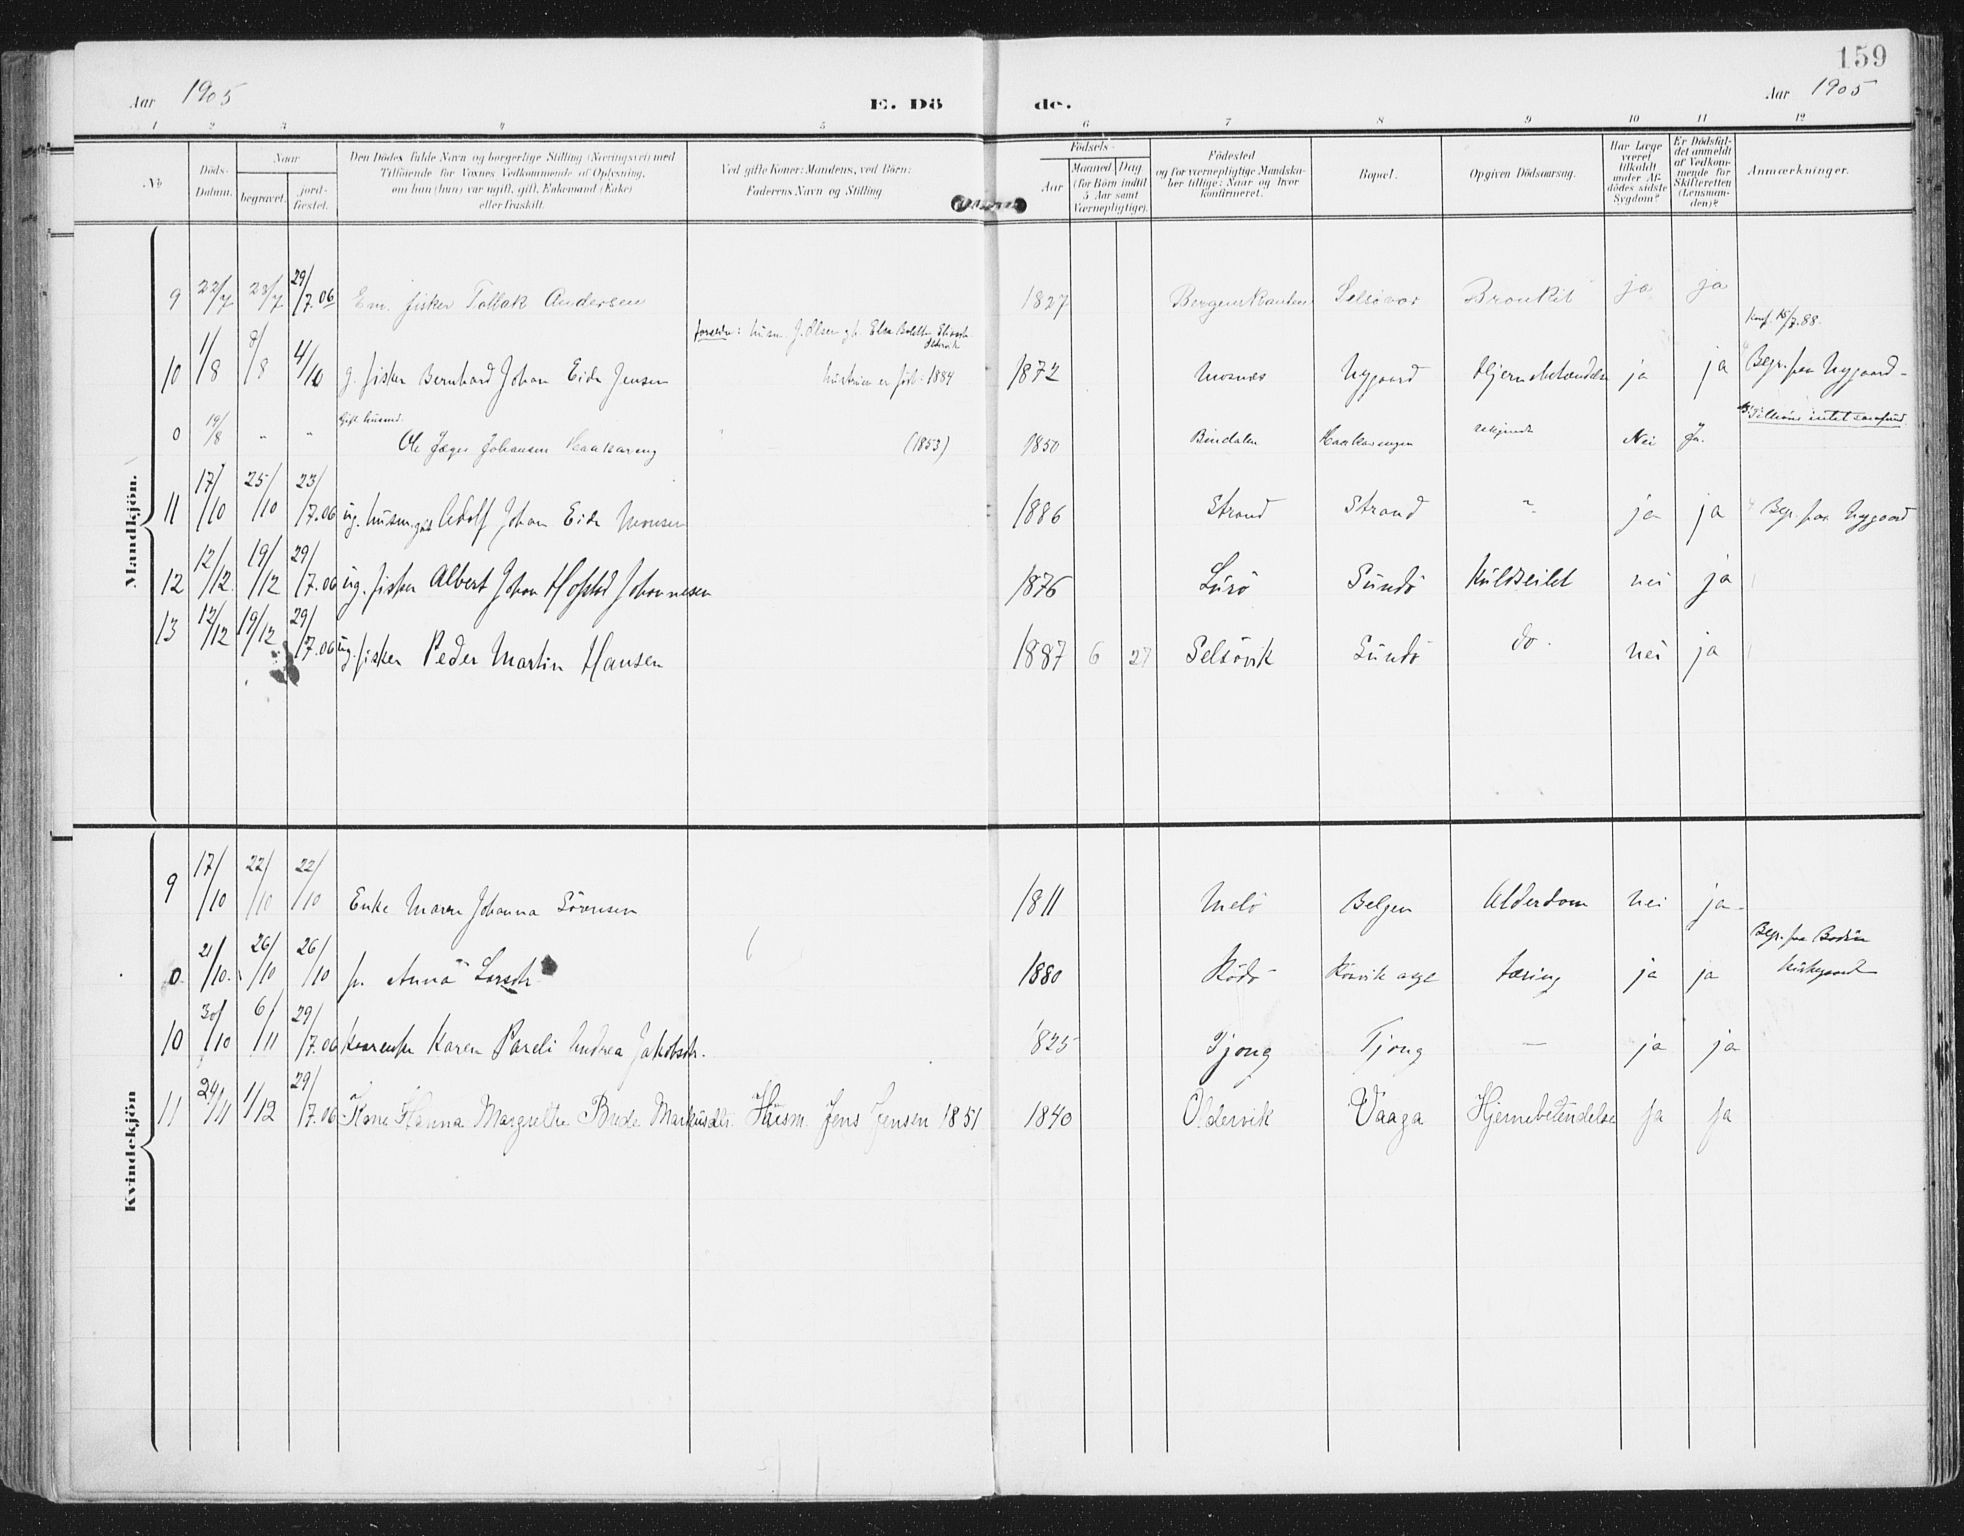 159
Aar 1905
E. Dö
de.
Aar 1905
1 2 3 4 5 6 7 8 9 10 11 12
No
Döds-
Datum.
Naar
begravet.
jord-
fæstet.
Den Dödes fulde Navn og borgerlige Stilling (Næringsvei) med
Tilföiende for Voxnes Vedkommende af Oplysning,
om han (hun) var ugift, gift, Enkemand (Enke)
eller fraskilt.
Ved gifte Koner: Mandens, ved Börn:
Faderens Navn og Stilling
Födsels-
Aar
Maaned Dag
(for Börn indtil
5 Aar samt
Værnepligtige).
Födested
og for værnepligtige Mandska-
ber tillige: Naar og hvor
konfirmeret.
Bopæl.
Opgiven Dödsaarsag.
Har Læge
været
tilkaldt
under Af-
dödes sidste
Sygdom?
Er Dödsfal-
det anmeldt
af Vedkom-
mende for
Skifteretten
(Lensman-
den)?
Anmærkninger.
Mandkjön.
9 22/7 23/7 29/7.06 Em. fisker Tollak Andersen 1827 Selsövær Bronkit ja ja
forældre: husm. J. Olsen
Konf. 15/7.88.
10 1/8 8/8 4/10 g. fisker Bernhard Johan Eide Jensen hustruen er föd: 1884 1872 Mosnæs Nygaard Hjernebetændelse ja ja Begr. paa Nygaard
Gift husmd.
0 19/8 " " Ole Jæger Johansen Haakaaring (1853) 1850 Bindalen Nei Ja.
11 17/10 25/10 23/7.06 ug. husm. Adolf Johan Eide Monsen 1886 Strand Strand " ja ja Begr. paa Nygaard
12 12/12 19/12 29/7.06 ug. fisker Albert Johan Hofstad Johannesen 1876 Lurö Sundö Kuldseilet nei ja
13 12/12 19/12 29/7.06 ug. fisker Peder Martin Hansen 1887 6 27 Selsövik Sundö do. nei ja
Kvindekjön
9 17/10 22/10 22/10 Enke Maren Johanna Sörensen 1811 Melö Belgen Alderdom nei ja
0 21/10 26/10 26/10 p. Anna Larsdtr 1880 Rödö tæring ja ja Begr. paa Bodin
kirkegaard
10 30/10 6/11 29/7.06 Karen Pareli Andrea Jakobsdtr. 1825 Tjong Tjong — ja ja
11 24/11 1/12 29/7.06 Kone Hanna Margrethe Bude Markusdtr. Husm. Jens Jensen 1851 1840 Oldervik Vaaga Hjernebetændelse Ja Ja